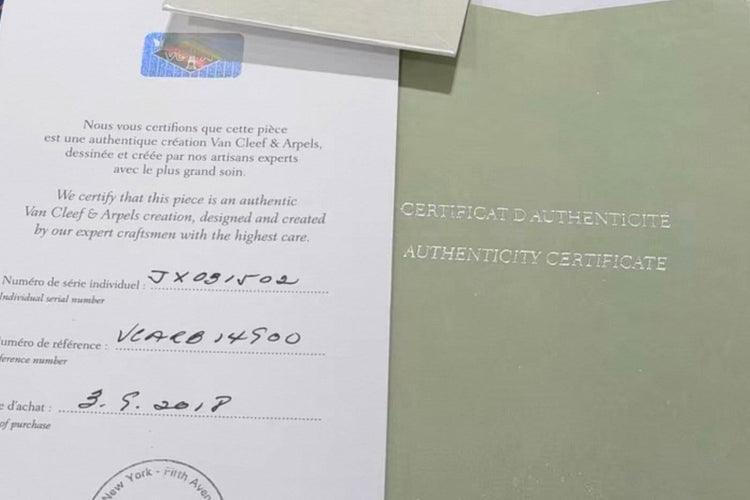 VCA
Nous vous certifions que cette pièce
est une authentique création Van Cleef & Arpels,
dessinée et créée par nos artisans experts
avec le plus grand soin.
We certify that this piece is an authentic
Van Cleef & Arpels creation, designed and created
by our expert craftsmen with the highest care.
Numéro de série individuel : JX031502
Individual serial number
uméro de référence : VCARB14900
ference number
e d'achat : 3. 9. 2018
of purchase
New York - Fifth Aven
CERTIFICAT D'AUTHENTICITÉ
AUTHENTICITY CERTIFICATE